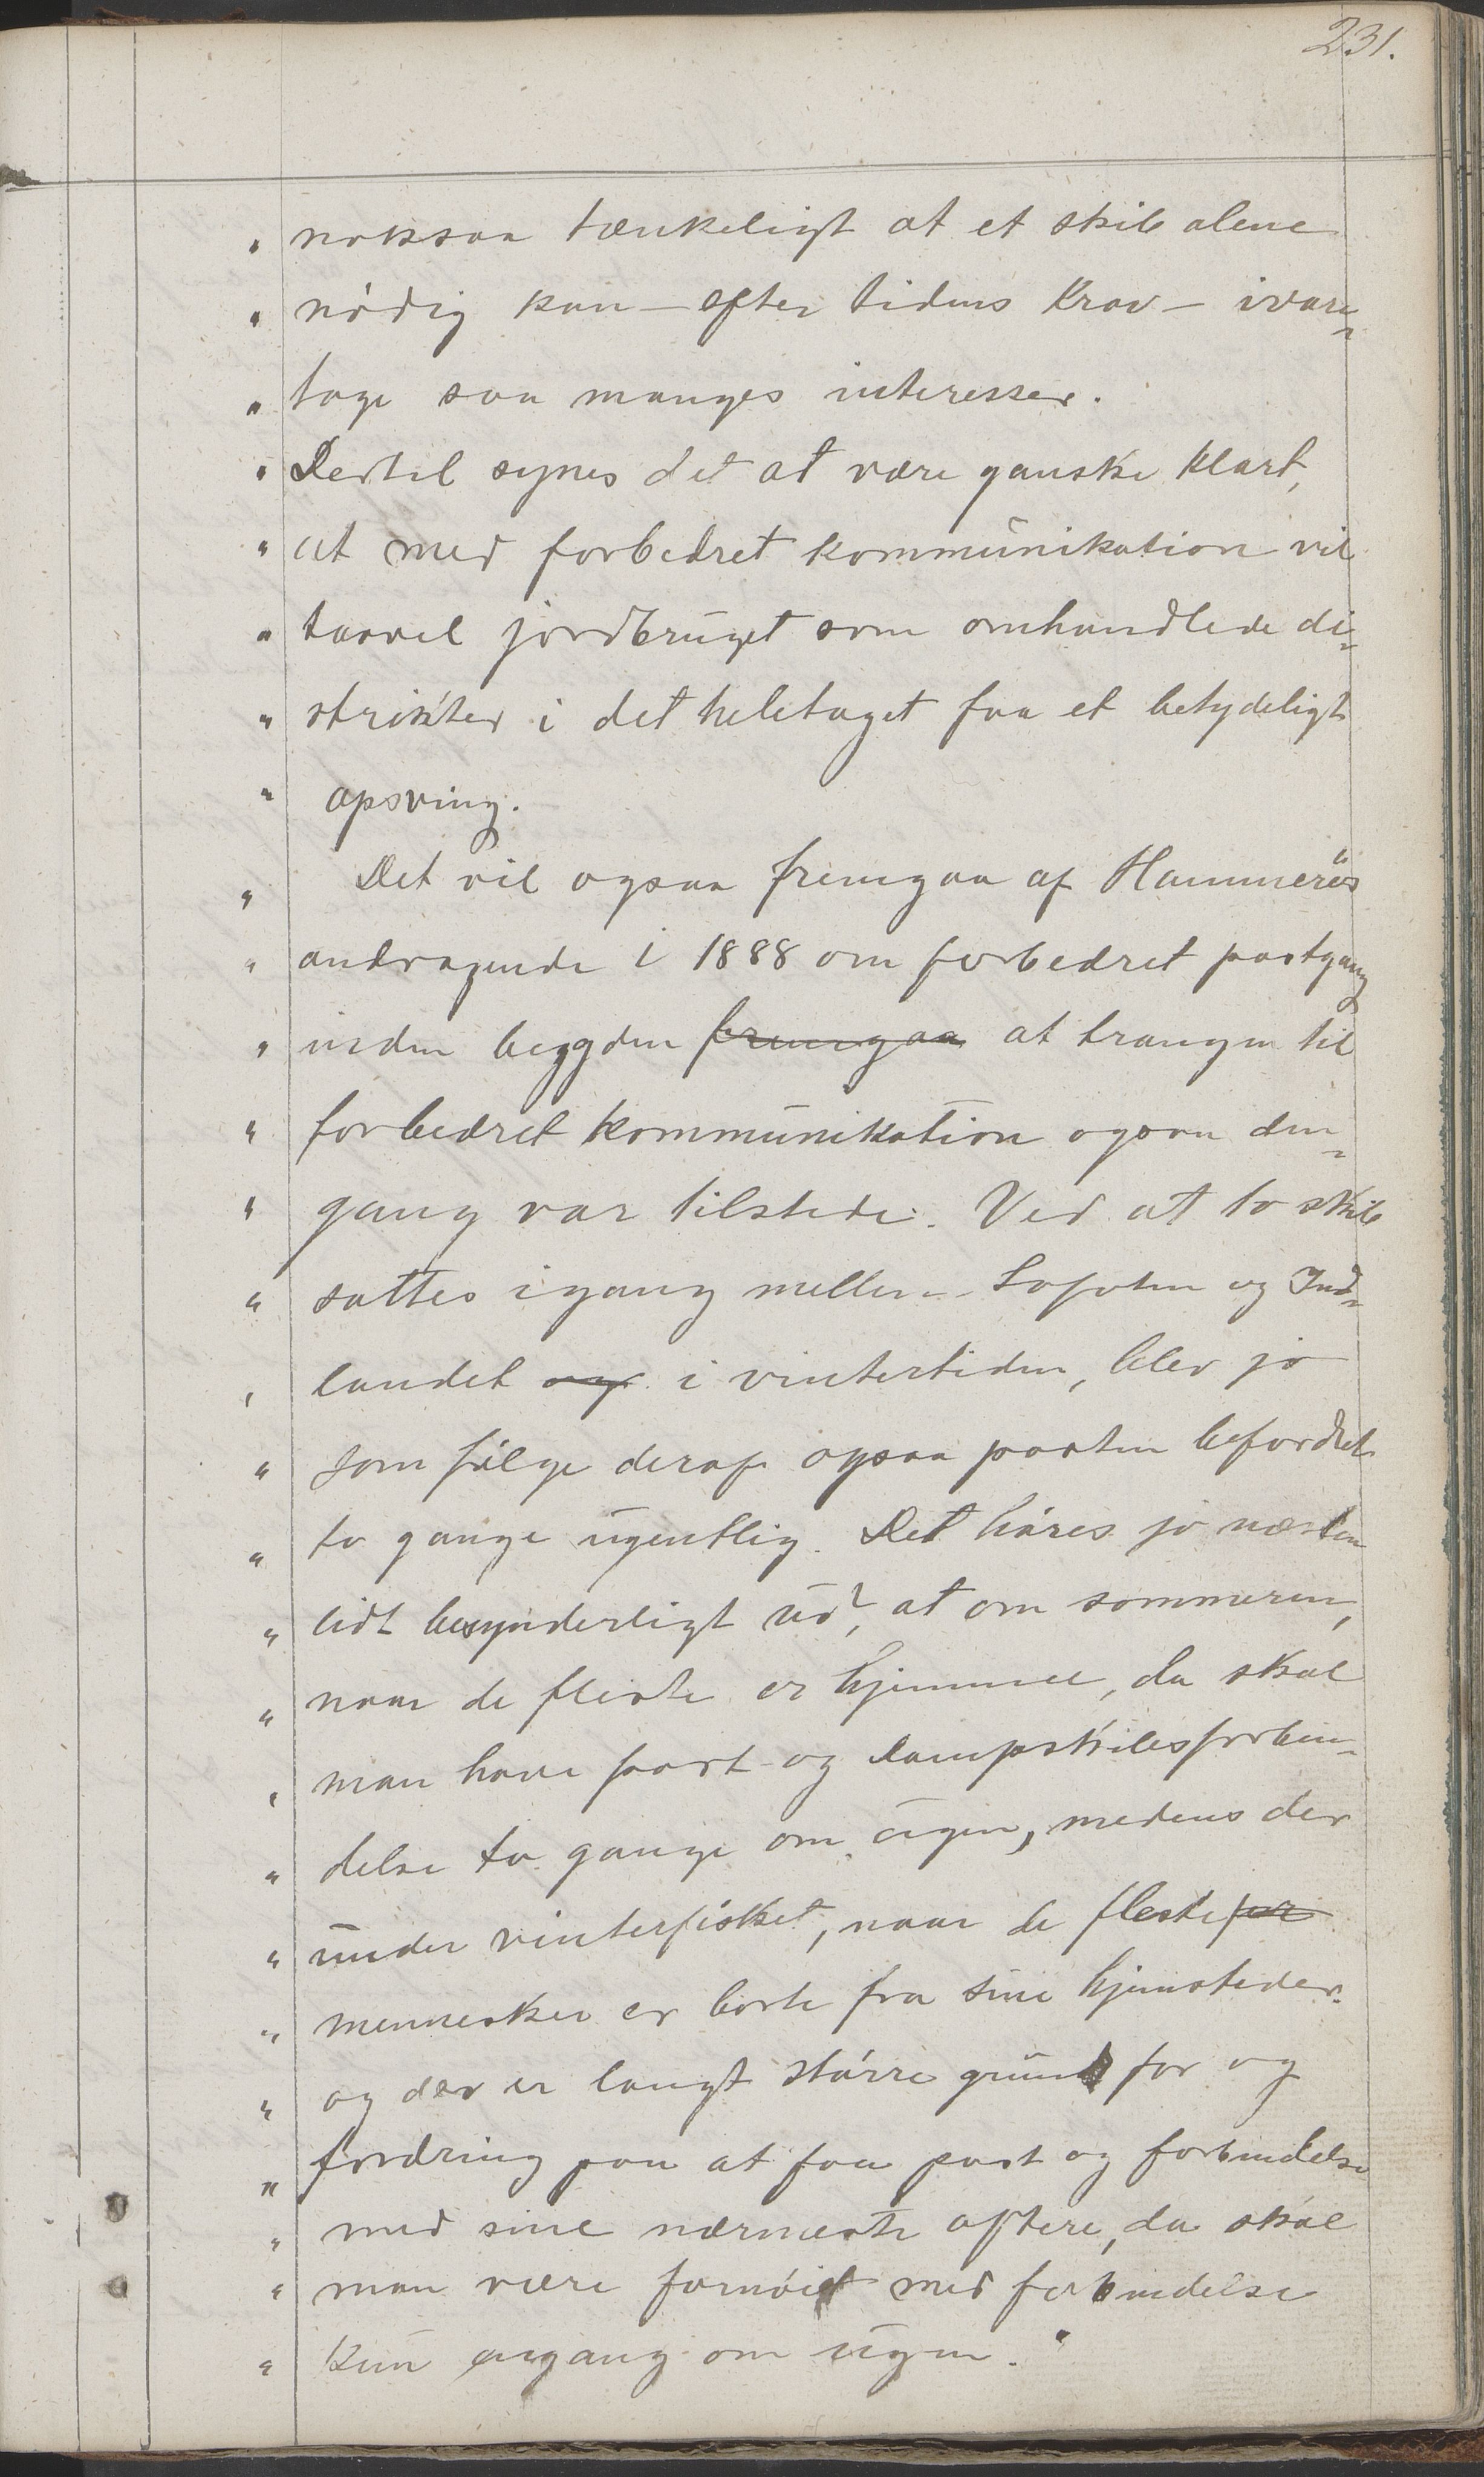 231.
" noksaa tænkeligt at et skib alene
" nödig kan – efter tidens Krav – ivare-
" tage saa manges interesser.
" Dertil synes det at være ganske klart,
" at med forbedret kommunikation vil
" saavel jordbruget som omhandlede di-
" strikter i det heletaget faa et betydeligt
" opsving.
" Det vil ogsaa fremgaa af Hammerös
" andragende i 1888 om forbedret postgang
" inden bygden ~~fremgaa~~ at trangen til
" forbedret kommunikation ogsaa den-
" gang var tilstede. Ved at to skib
" sattes igang mellem Lofoten og Ind-
" landet ~~og~~ i vintertiden, blev jo
" som fölge deraf ogsaa posten befordret
" to gange ugentlig. Det höres jo næsten
" lidt besynderligt ud, at om sommeren,
" naar de fleste er hjemme, da skal
" man have post- og Dampskibsforbin-
" delse to gange om ugen, medens der
" under vinterfisket, naar de fleste ~~er~~
" mennesker er borte fra sine hjemsteder
" og der er langt större grund for og
" fordring paa at faa post og forbindelse
" med sine nærmeste oftere, da skal
" man være fornöiet med forbindelse
" kun engang om ugen."